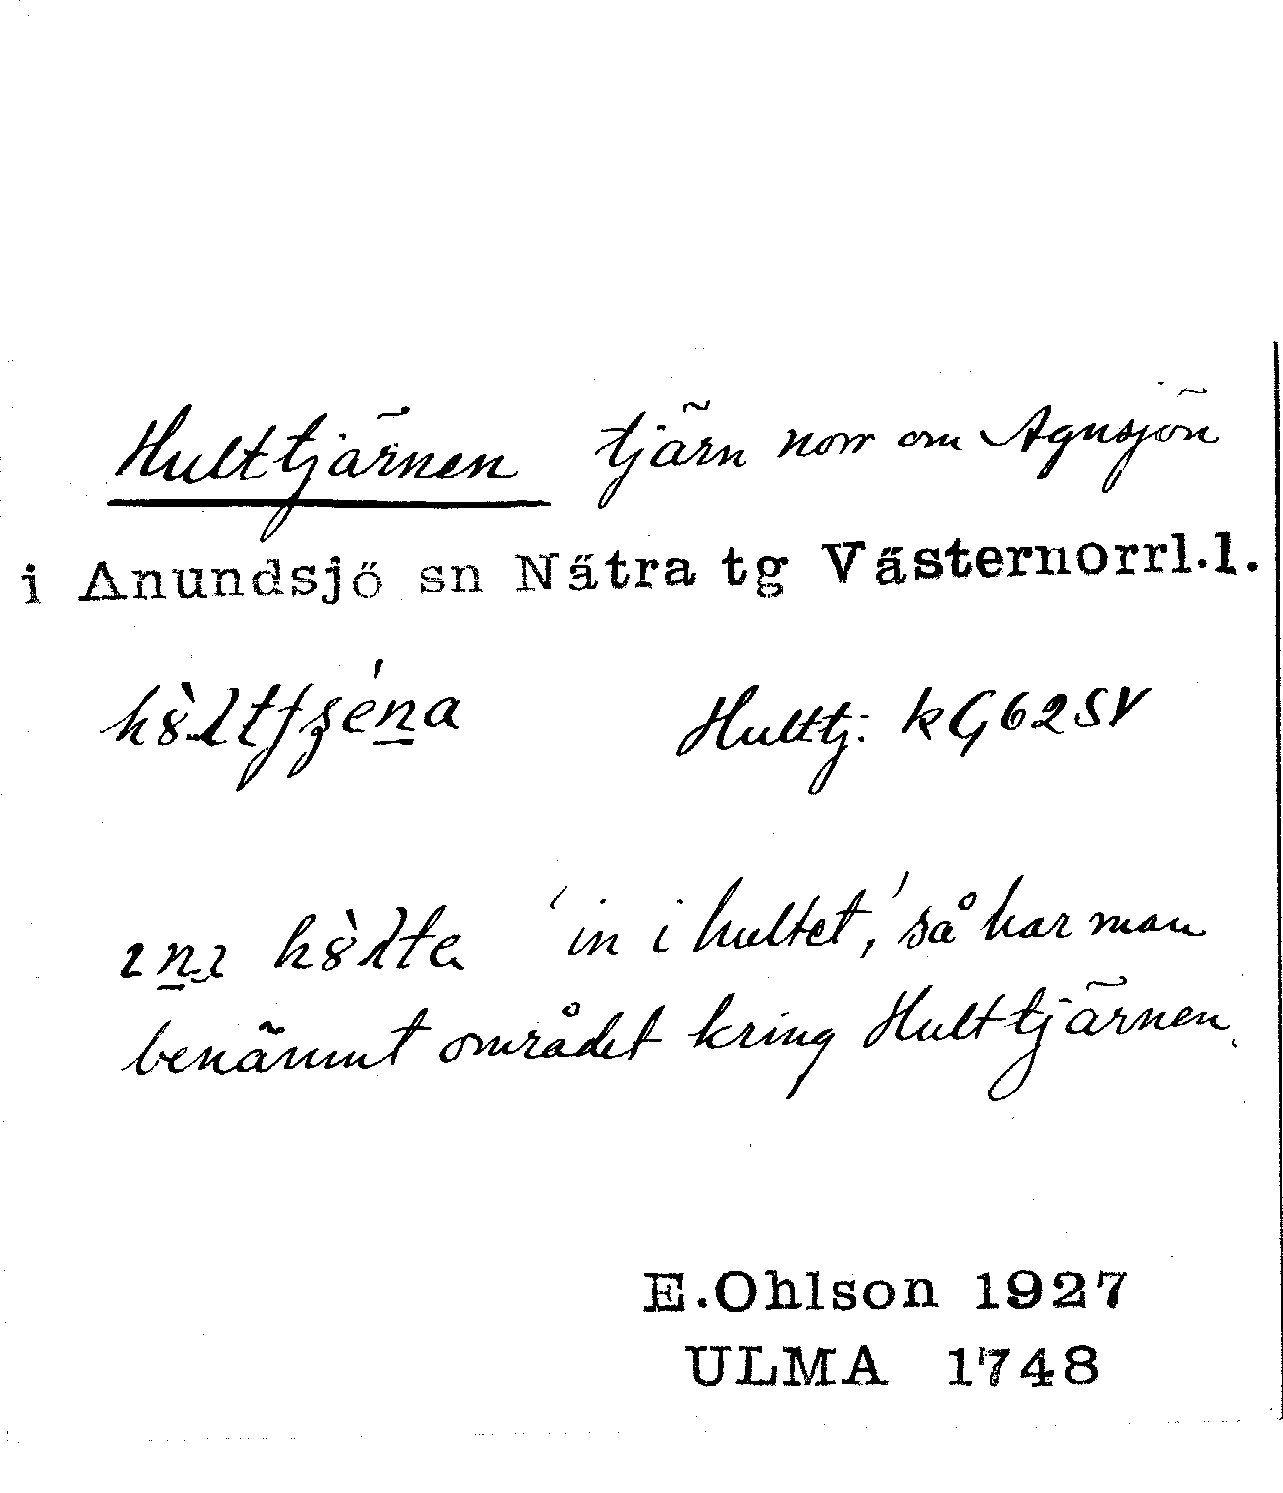 Hulttjärnen tjärn norr om Agnsjön
i Anundsjö sn Nätra tg Västernorrl.l.
Hulttj: kG62SV
'in i hultet,' så har man
benämnt området kring Hulttjärnen.
E.Ohlson 1927
ULMA 1748